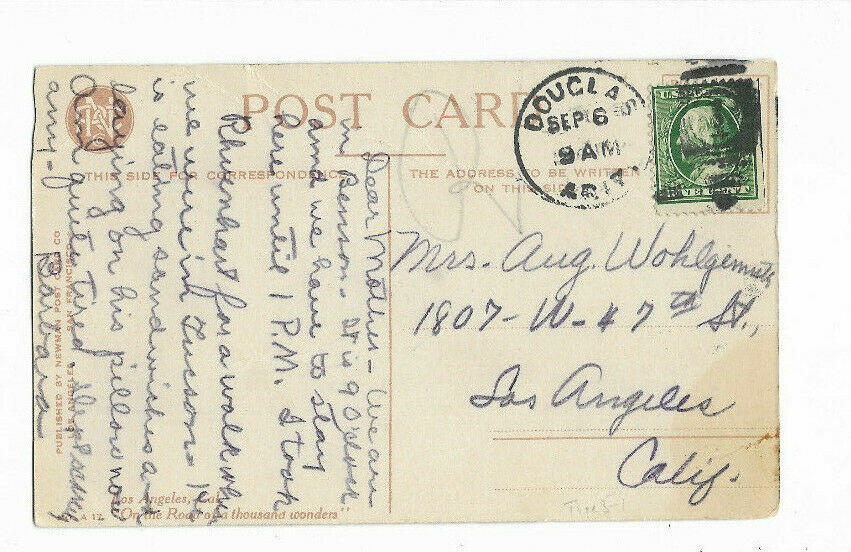 POST CARD
THIS SIDE FOR CORRESPONDENCE
THE ADDRESS TO BE WRITTEN
ON THIS SIDE
DOUGLA
SEP 6
9 AM
ARIZ.
U.S.
ONE CENT
Dear Mother - We are
in Benson. It is 9 O'clock
and we have to stay
here until 1 P.M. I took
Rhienhart for a walk when
we were in Tucson. He
is eating sandwiches and
laying on his pillow now
Am quite tired.
amy -
Barbara
Mrs. Aug. Wohlgemuth
1807 - W - 47th St.,
Los Angeles
Calif.
PUBLISHED BY NEWMAN POST CARD CO
LOS ANGELES, SAN FRANCISCO
Los Angeles, Cal.
A 17. "On the Road of a thousand wonders"